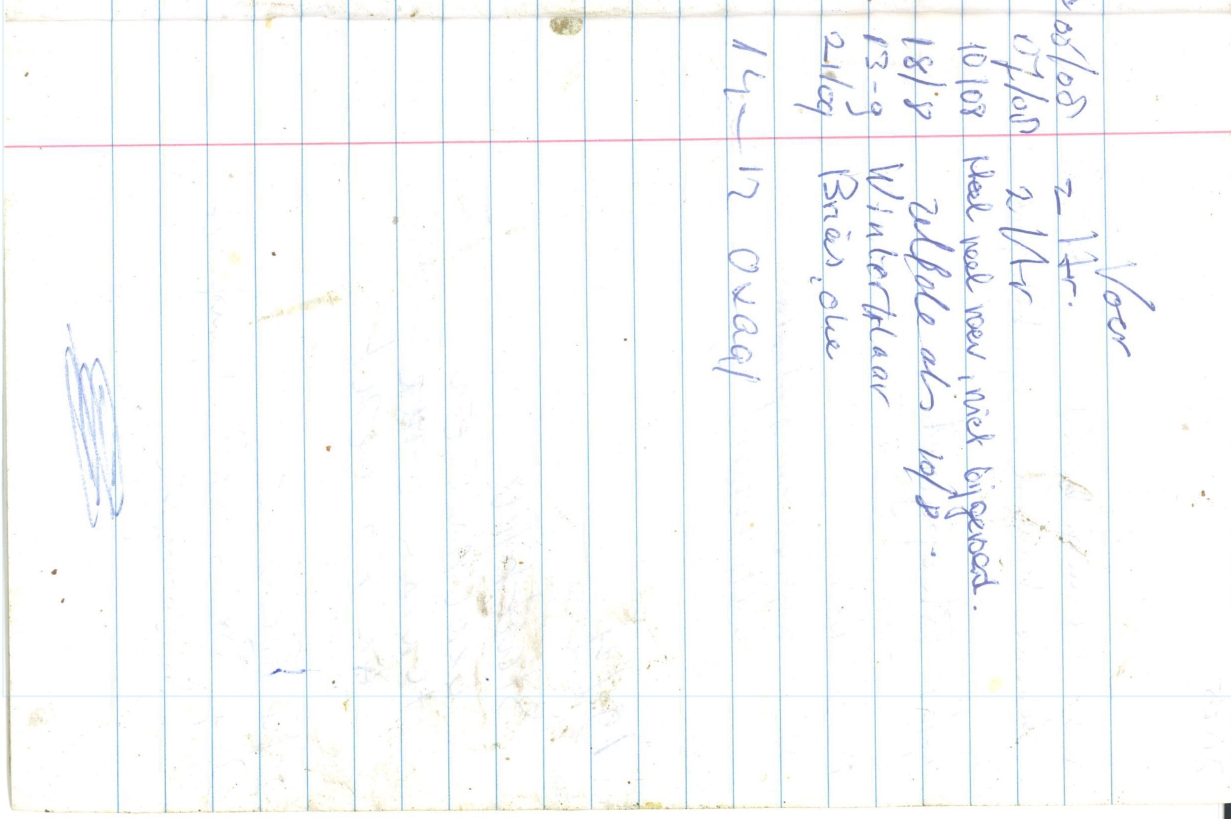 Voer
05/08 2 ltr.
07/08 2 ltr
10/08 Heel veel voer, niet bijgevoed.
18/8 zelfde als 10/8.
13-9 Winterklaar
21/09 Brias, due
14-12 Oxaal